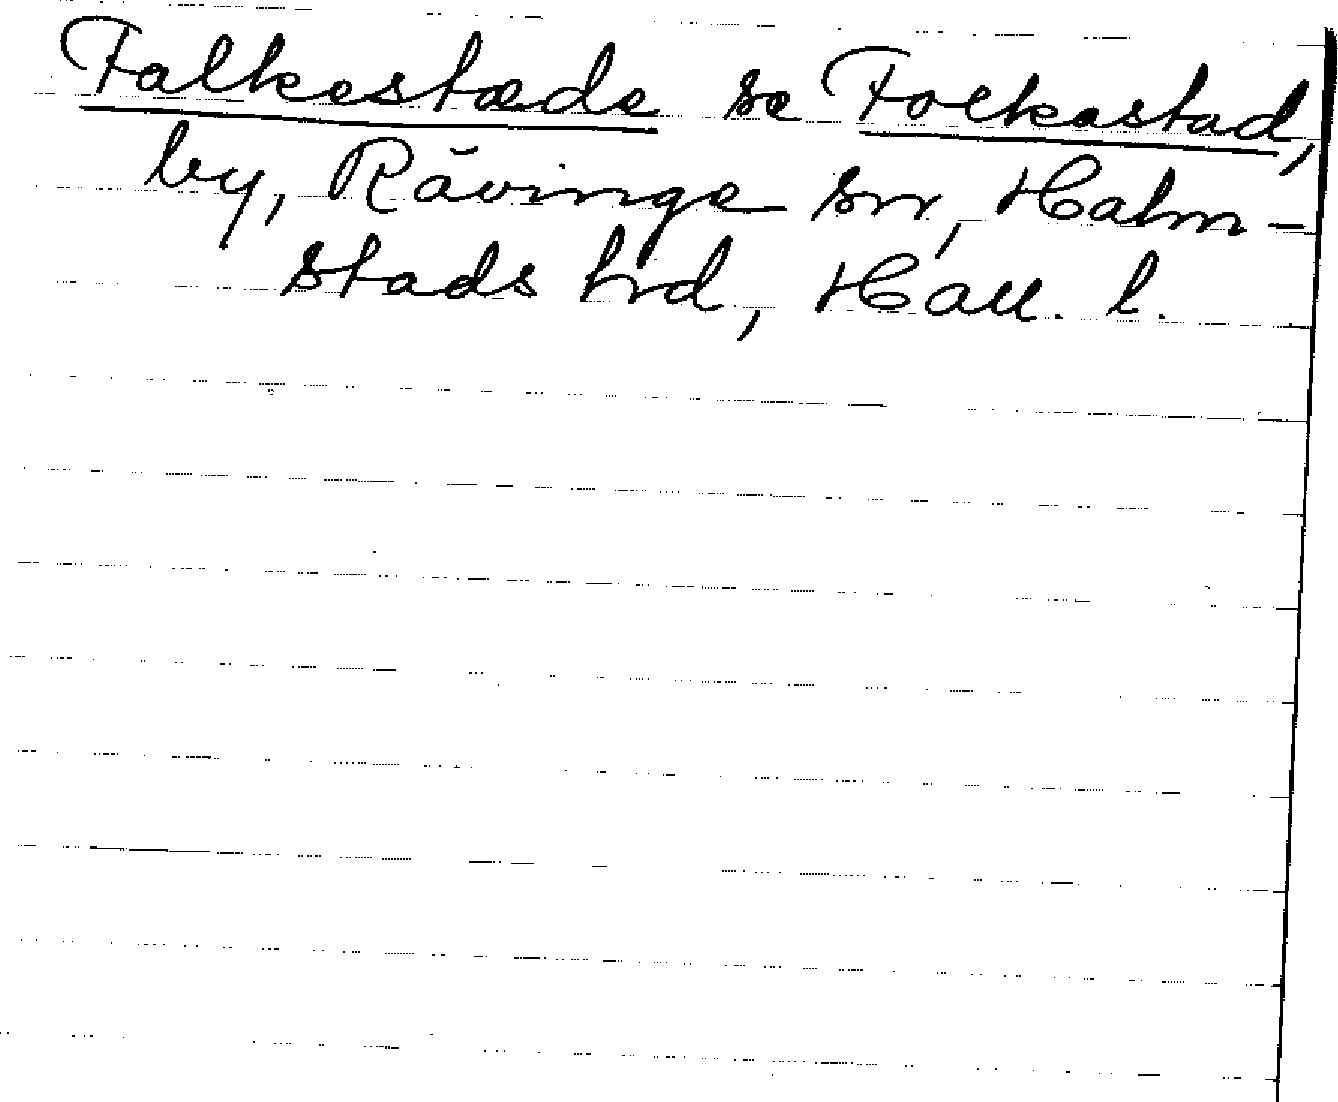 Falkestæde se Folkastad,
by, Råvinge sn, Halm-
stads hrd, Hall. l.